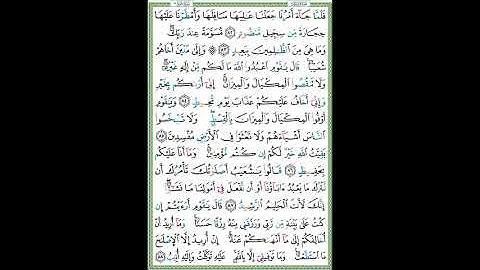 فَلَمَّا جَاءَ أَمْرُنَا جَعَلْنَا عَالِيَهَا سَافِلَهَا وَأَمْطَرْنَا عَلَيْهَا
حِجَارَةً مِّن سِجِّيلٍ مَّنضُودٍ ﴿٨٢﴾ مُّسَوَّمَةً عِندَ رَبِّكَ
وَمَا هِيَ مِنَ الظَّالِمِينَ بِبَعِيدٍ ﴿٨٣﴾ ۞ وَإِلَىٰ مَدْيَنَ أَخَاهُمْ
شُعَيْبًا قَالَ يَا قَوْمِ اعْبُدُوا اللَّهَ مَا لَكُم مِّنْ إِلَٰهٍ غَيْرُهُ
وَلَا تَنقُصُوا الْمِكْيَالَ وَالْمِيزَانَ إِنِّي أَرَاكُم بِخَيْرٍ
وَإِنِّي أَخَافُ عَلَيْكُمْ عَذَابَ يَوْمٍ مُّحِيطٍ ﴿٨٤﴾ وَيَا قَوْمِ
أَوْفُوا الْمِكْيَالَ وَالْمِيزَانَ بِالْقِسْطِ وَلَا تَبْخَسُوا
النَّاسَ أَشْيَاءَهُمْ وَلَا تَعْثَوْا فِي الْأَرْضِ مُفْسِدِينَ ﴿٨٥﴾
بَقِيَّتُ اللَّهِ خَيْرٌ لَّكُمْ إِن كُنتُم مُّؤْمِنِينَ وَمَا أَنَا عَلَيْكُم
بِحَفِيظٍ ﴿٨٦﴾ قَالُوا يَا شُعَيْبُ أَصَلَاتُكَ تَأْمُرُكَ أَن
نَّتْرُكَ مَا يَعْبُدُ آبَاؤُنَا أَوْ أَن نَّفْعَلَ فِي أَمْوَالِنَا مَا نَشَاءُ
إِنَّكَ لَأَنتَ الْحَلِيمُ الرَّشِيدُ ﴿٨٧﴾ قَالَ يَا قَوْمِ أَرَأَيْتُمْ إِن
كُنتُ عَلَىٰ بَيِّنَةٍ مِّن رَّبِّي وَرَزَقَنِي مِنْهُ رِزْقًا حَسَنًا وَمَا أُرِيدُ أَنْ
أُخَالِفَكُمْ إِلَىٰ مَا أَنْهَاكُمْ عَنْهُ إِنْ أُرِيدُ إِلَّا الْإِصْلَاحَ
مَا اسْتَطَعْتُ وَمَا تَوْفِيقِي إِلَّا بِاللَّهِ عَلَيْهِ تَوَكَّلْتُ وَإِلَيْهِ أُنِيبُ ﴿٨٨﴾